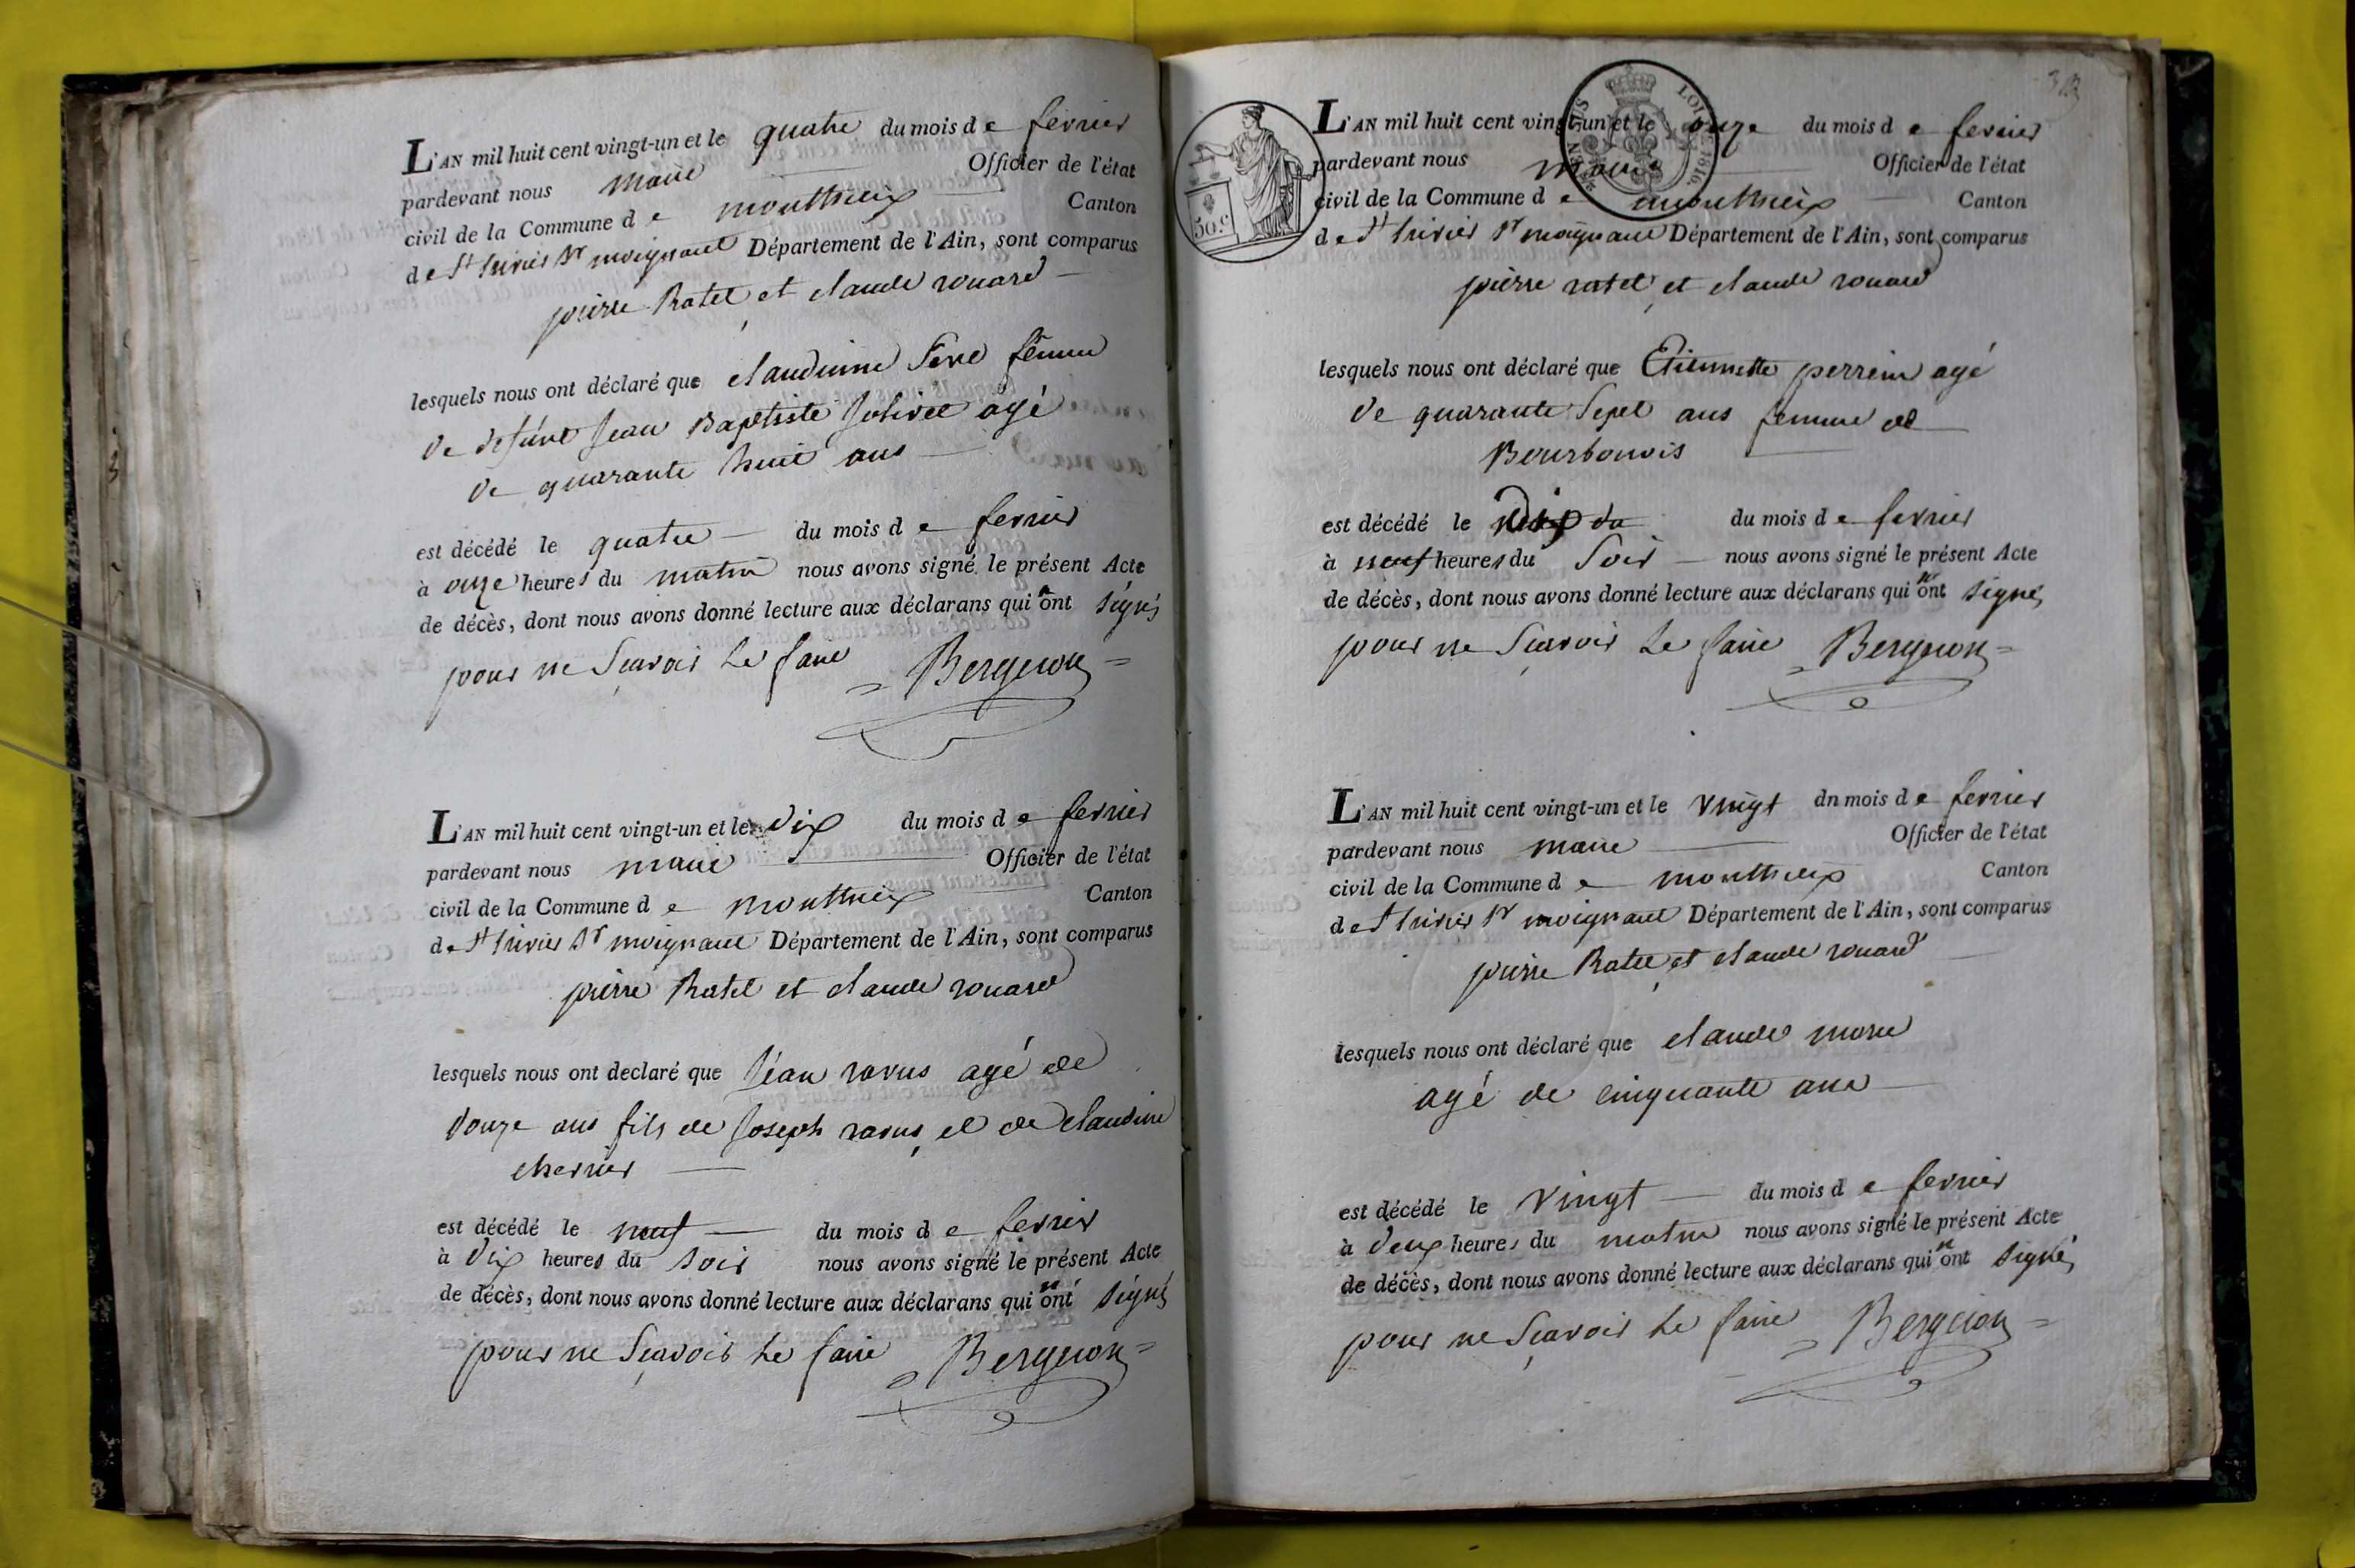 L'AN mil huit cent vingt-un et le quatre du mois de fevrier
pardevant nous maire Officier de l'état
civil de la Commune de monthieix Canton
de St trivier Sr moignant Département de l'Ain, sont comparus
pierre Ratel et claude rouard
lesquels nous ont déclaré que claudinne Seve femme
de defunt jean Baptiste jolivet agé
de quarante huit ans
est décédé le quatre du mois de fevrier
à onze heures du matin nous avons signé le présent Acte
de décès, dont nous avons donné lecture aux déclarans qui n'ont signés
pour ne Sçavoir le faire Bergeron
L'AN mil huit cent vingt-un et le dix du mois de fevrier
pardevant nous maire Officier de l'état
civil de la Commune de monthieix Canton
de St trivier Sr moignant Département de l'Ain, sont comparus
pierre Ratel et claude rouard
lesquels nous ont declaré que jéan ravus agé de
douze ans fils de joseph ravus et de claudine
chervier
est décédé le neuf du mois de fevrier
à dix heures du soir nous avons signé le présent Acte
de décès, dont nous avons donné lecture aux déclarans qui n'ont signés
pour ne Sçavoir le faire Bergeron
L'AN mil huit cent vingt-un et le onze du mois de fevrier
pardevant nous maire Officier de l'état
civil de la Commune de monthieix Canton
de St trivier Sr moignant Département de l'Ain, sont comparus
pierre ratel et claude rouard
lesquels nous ont déclaré que Etiennette perrein agé
de quarante Sept ans femme de
Bourbonois
est décédé le Dix du mois de fevrier
à neuf heures du Soir nous avons signé le présent Acte
de décès, dont nous avons donné lecture aux déclarans qui n'ont signés
pour ne Sçavoir le faire Bergeron
L'AN mil huit cent vingt-un et le vingt dn mois de fevrier
pardevant nous maire Officier de l'état
civil de la Commune de monthieix Canton
de St trivier Sr moignant Département de l'Ain, sont comparus
pierre Ratel et claude rouard
lesquels nous ont déclaré que claude morel
agé de cinquante ans
est décédé le vingt du mois de fevrier
à deux heures du matin nous avons signé le présent Acte
de décès, dont nous avons donné lecture aux déclarans qui n'ont signés
pour ne Sçavoir le faire Bergeron
50.c
1816.